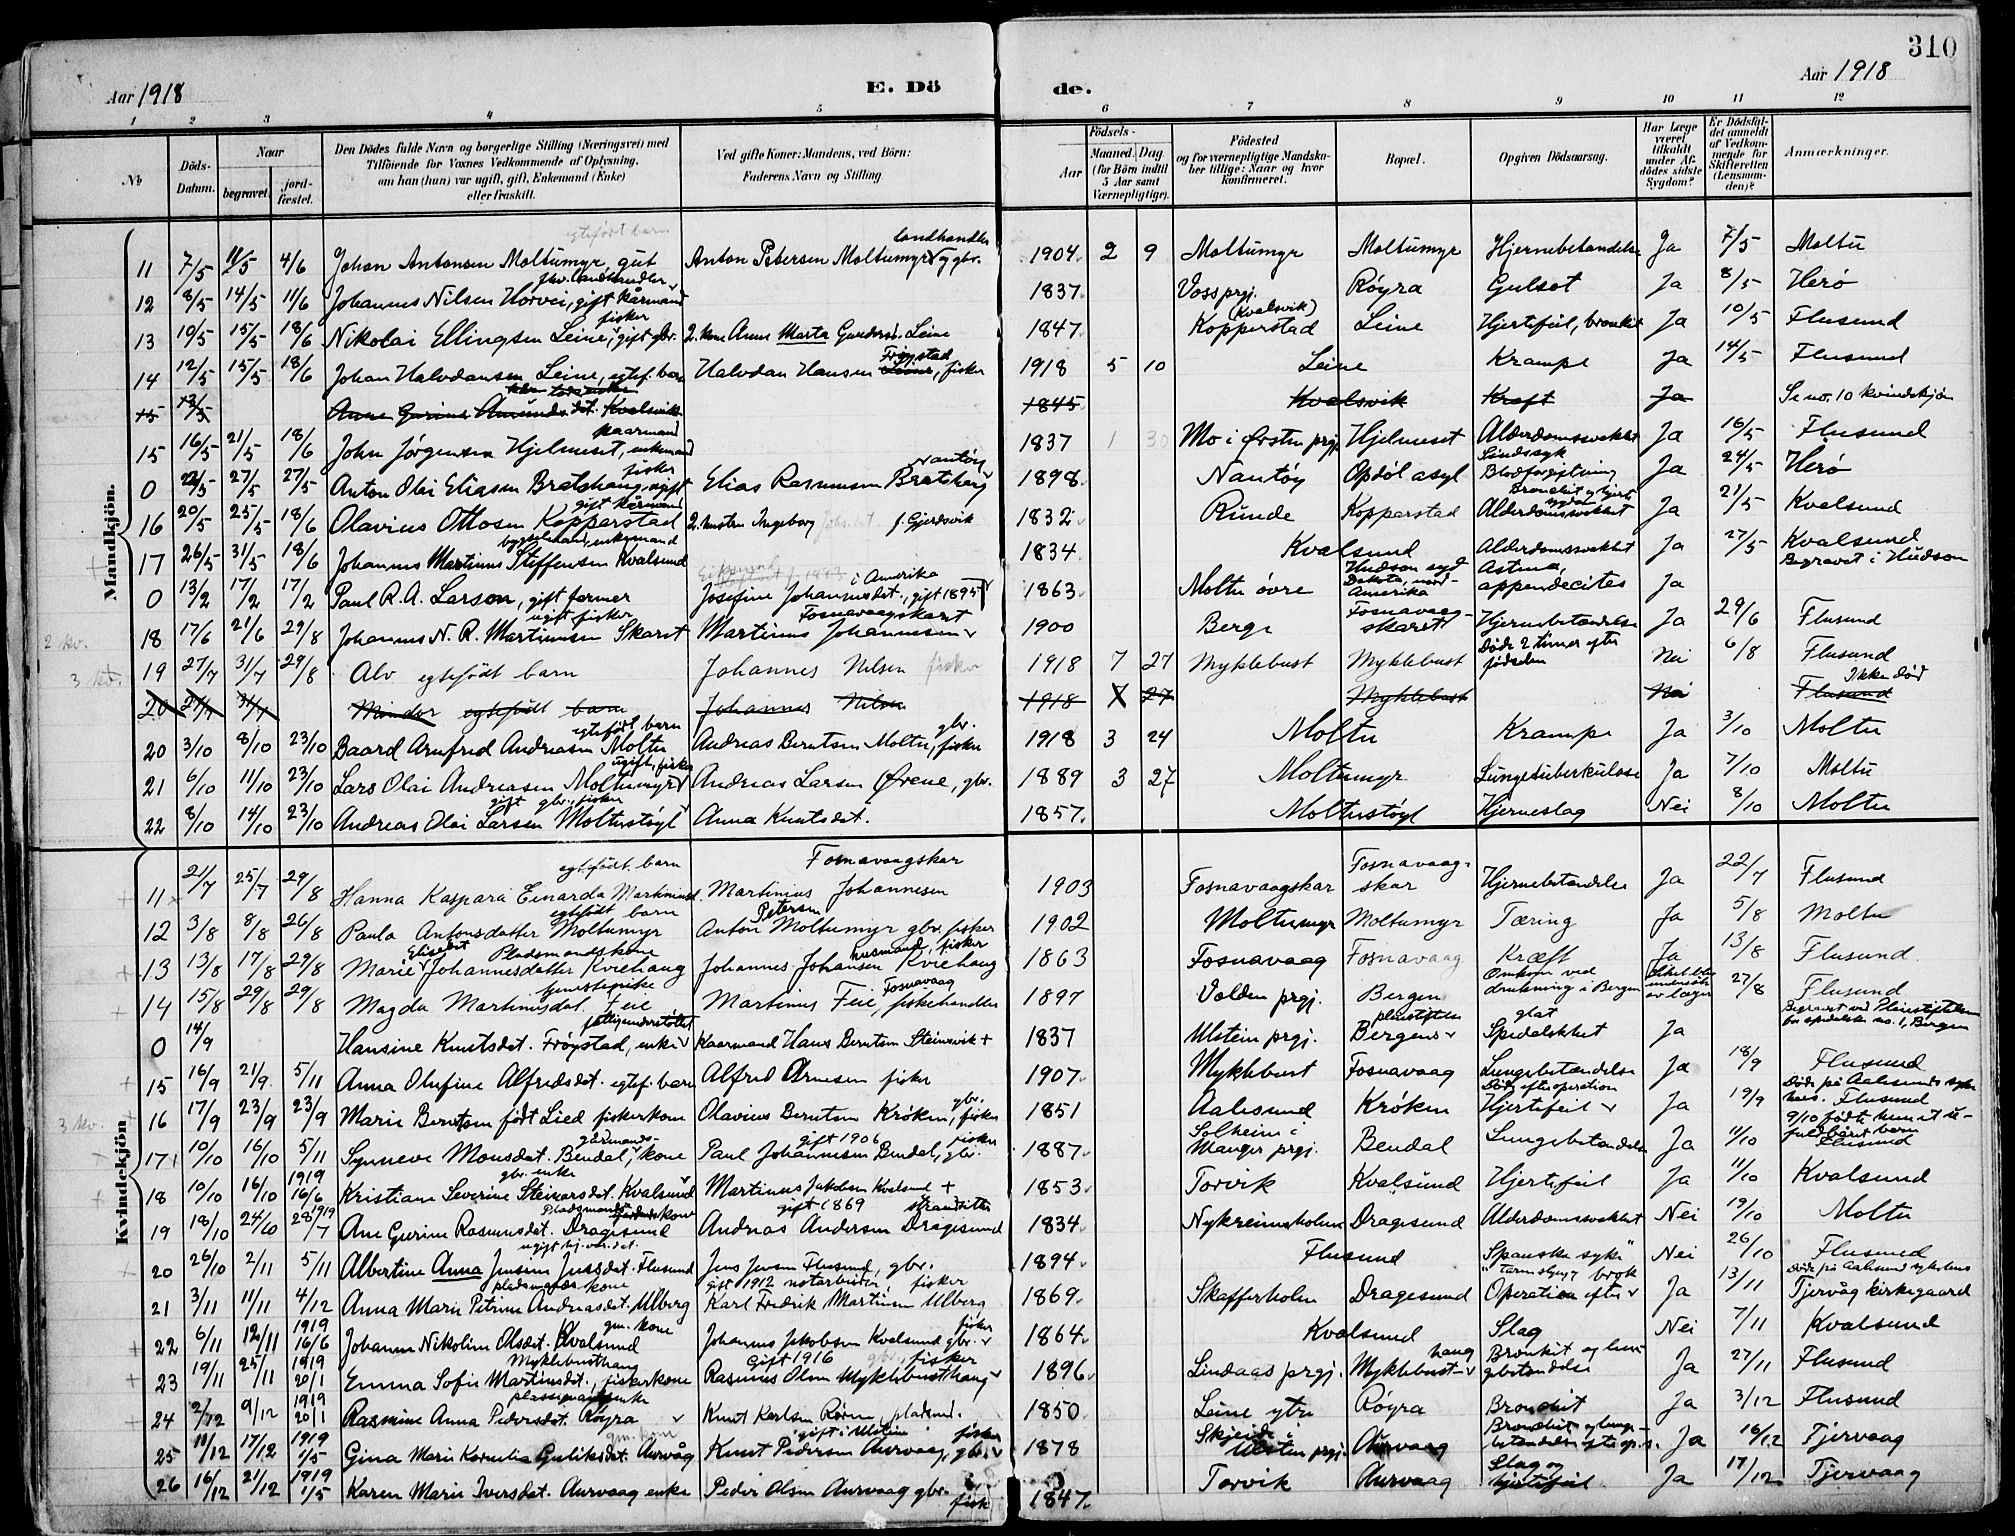 310
Aar 1918 E. Dö de. Aar 1918
1 2 3 4 5 6 7 8 9 10 11 12
№ Döds-Datum. Naar begravet. jord-fæstet. Den Dödes fulde Navn og borgerlige Stilling (Næringsvei) med Tilföiende for Voxnes Vedkommende af Oplysning, om han (hun) var ugift, gift, Enkemand (Enke) eller fraskilt. Ved gifte Koner: Mandens, ved Börn: Faderens Navn og Stilling. Födsels- Aar Maaned. Dag (for Börn indtil 5 Aar samt Værnepligtige). Födested og for værnepligtige Mandskaber tillige: Naar og hvor konfirmeret. Bopæl. Opgiven Dödsaarsag. Har Læge været tilkaldt under Afdödes sidste Sygdom? Er Dödsfaldet anmeldt af Vedkommende for Skifteretten (Lensmanden)? Anmærkninger.
Mandkjön.
egtefödt barn landhandler
11 7/5 11/5 4/6 Johan Antonsen Moltumyr, gut Anton Petersen Moltumyr, gbr. 1904 2 9 Moltumyr Moltumyr Hjernebetændelse Ja 7/5 Moltu
fhv. landhandler
12 8/5 14/5 11/6 Johannes Nilsen Horvei, gift kårmand 1837 Voss prgj. Røyra Gulsot Ja 8/5 Herø
fisker (Kvalsvik)
13 10/5 15/5 18/6 Nikolai Ellingsen Leine, gift gbr. 2. kone Anne Marta Gundersd. Leine 1847 Kopperstad Leine Hjertefeil, bronkit Ja 10/5 Flusund
Frøystad
14 12/5 15/5 18/6 Johan Halvdansen Leine, egtef. barn Halvdan Hansen Leine, fisker 1918 5 10 Leine Krampe Ja 14/5 Flusund
15 13/5 Anne Gurine Amundsdet. Kvalsvik 1845 Kvalsvik Kreft Ja Se no. 10 kvindekjøn
kaarmand
15 16/5 21/5 18/6 John Jørgensen Hjelmeset, enkemand 1837 1 30 Mo i Ørsten prgj. Hjelmeset Alderdomssvakhet Ja 16/5 Flusund
fisker Nautøy Sindssyk
0 22/5 27/5 27/5 Anton Olai Eliasen Bratthaug, ugift Elias Rasmussen Bratthaug 1898 Nautöy Opdöl asyl Blodforgiftning Ja 24/5 Herø
gift kårmand Bronchit og hjertesygdom
16 20/5 25/5 18/6 Olavius Ottosen Kopperstad 2. hustru Ingeborg f. Gjerdsvik 1832 Runde Kopperstad Alderdomssvakhet Ja 21/5 Kvalsund
bygselmand, enkemand
17 26/5 31/5 18/6 Johannes Martinus Steffensen Kvalsund 1834 Kvalsund Alderdomssvakhet Ja 27/5 Kvalsund
i Amerika Hudson syd Dakota, nord-Amerika Begravet i Hudson
0 13/2 17/2 17/2 Paul R. A. Larson, gift farmer Josefine Johannesdet., gift 1895 1863 Moltu övre Astma, appendecites Ja
ugift fisker Fosnavaagskaret
2 kv. 18 17/6 21/6 29/8 Johannes N. R. Martinusen Skaret Martinus Johannesen 1900 Berge Fosnavaagskaret Hjernebetændelse Ja 29/6 Flusund
3 kv. 19 27/7 31/7 29/8 Alv egtefödt barn Johannes Nilsen fisker 1918 7 27 Myklebust Myklebust Döde 2 timer efter födselen Nei 6/8 Flusund
20 27/7 31/7 Mindor egtefödt barn Johannes Nilsen 1918 7 27 Myklebust Nei Flusund Ikke död
egtefödt barn gbr.
20 3/10 8/10 23/10 Baard Arnfred Andreasen Moltu Andreas Berntsen Moltu, fisker 1918 3 24 Moltu Krampe Ja 3/10 Moltu
ugift, fisker
21 6/10 11/10 23/10 Lars Olai Andreasen Moltumyr Andreas Larsen Øvrene, gbr. 1889 3 27 Moltumyr Lungetuberkulose Ja 7/10 Moltu
gift gbr., fisker
22 8/10 14/10 23/10 Andreas Olai Larsen Moltustøyl Anna Knutsdet. 1857 Moltustøyl Hjerneslag Nei 8/10 Moltu
Kvindekjön
egtefödt barn Fosnavaagskar
11 21/7 25/7 29/8 Hanna Kaspara Einarda Martinusd. Martinius Johannesen 1903 Fosnavaagskar Fosnavaagskar Hjernebetændelse Ja 22/7 Flusund
egtefödt barn Petersen
12 3/8 8/8 26/8 Paula Antonsdatter Moltumyr Anton Moltumyr gbr. fisker 1902 Moltumyr Moltumyr Tæring Ja 5/8 Moltu
Elisebet Pladsmandskone husmand, fisker
13 13/8 17/8 29/8 Marie Johannesdatter Kviehaug Johannes Johansen Kviehaug 1863 Fosnavaag Fosnavaag Kræft Ja 13/8 Flusund
tjenestepike Fosnavaag
14 15/8 29/8 29/8 Magda Martinusdat. Feie Martinus Feie, fiskehandler 1897 Volden prgj. Bergen Omkom ved drukning i Bergen Liket blev undersökt av læger 27/8 Flusund
fattigunderstöttet pleiestiftelse glat
0 14/9 Hansine Knutsdet. Frøystad, enke Kaarmand Hans Berntsen Steinsvik + 1837 Ulstein prgj. Bergens Spedalskhet Ja Begravet ved Pleiestiftelsen for spedalske no. 1, Bergen
15 16/9 21/9 5/11 Anna Olufine Alfredsdet. egtef. barn Alfred Arnesen fisker 1907 Myklebust Fosnavaag Lungebetændelse Ja 18/9 Flusund
gbr. Døde efter operation Døde på Aalesunds sykehus.
3 kv. 16 17/9 23/9 23/9 Marie Berntsen født Lied fiskerkone Olavius Berntsen Krøken, fisker 1851 Aalesund Krøken Hjertefeil Ja 19/9 Flusund
gårmands- gift 1906 fisker 9/10 födte hun et ufuldbårent barn
17 10/10 16/10 5/11 Synneve Monsdat. Bendal, kone Paul Johannesen Bendal, gbr. 1887 Solheim i Manger prgj. Bendal Lungebetændelse Ja 11/10 Flusund
gbr. enke
18 10/10 16/10 1919 16/6 Kristiane Severine Steinarsdet. Kvalsund Martinus Jakobsen Kvalsund + 1853 Torvik Kvalsund Hjertefeil Ja 11/10 Kvalsund
Pladsmands kone gift 1869 strandsitter
19 18/10 24/10 1919 28/7 Ane Gurine Rasmusdet. Dragesund Andreas Andersen Dragesund 1834 Nykreimsholmen Dragesund Alderdomssvakhet Nei 19/10 Moltu
ugift hj.vær. det.
20 26/10 2/11 5/11 Albertine Anna Jensine Jensdet. Flusund Jens Jensen Flusund, gbr. 1894 Flusund "Spanske syke" Nei 26/10 Flusund
pladsmands kone gift 1912 notarbeider, fisker Tarmslyng, brok Døde på Aalesund sykehus
21 3/11 11/11 4/12 Anna Marie Petrine Andreasdet. Ulberg Karl Fredrik Martinsen Ulberg 1869 Skafferholm Dragesund Operation efter Ja 13/11 Tjervåg kirkegaard
gm. kone fisker
22 6/11 12/11 1919 16/6 Johanne Nikoline Olsdet. Kvalsund Johannes Jakobsen Kvalsund gbr. 1864 Kvalsund Slag Nei 7/11 Kvalsund
Myklebusthaug gift 1916 gbr., fisker haug
23 19/11 25/11 1919 20/1 Emma Sofie Martinsdet., fiskerkone Rasmus Olsen Myklebusthaug 1896 Lindaas prgj. Myklebust- Bronkit og lungebetændelse Ja 27/11 Flusund
plassmandsenke
24 2/12 9/12 1919 20/1 Rasmine Anna Pedersdet. Røyra Knut Karlsen Røren, pladsmd. 1850 Leine ytre Røyra Bronchit Ja 3/12 Flusund
gm. kone gift i Ulstein fisker
25 11/12 17/12 1919 1/5 Gina Marie Kornelia Guliksdet. Aurvåg Knut Pedersen Aurvaag, gbr. 1878 Skjeide i Ulstein prgj. Aurvaag Bronchit og lungebetændelse efter op. Ja 16/12 Tjervaag
26 16/12 21/12 1919 1/5 Karen Marie Iversdet. Aurvaag enke Peder Olsen Aurvaag gbr. fisk 1847 Torvik Aurvaag Slag og hjertefeil Ja 17/12 Tjervaag